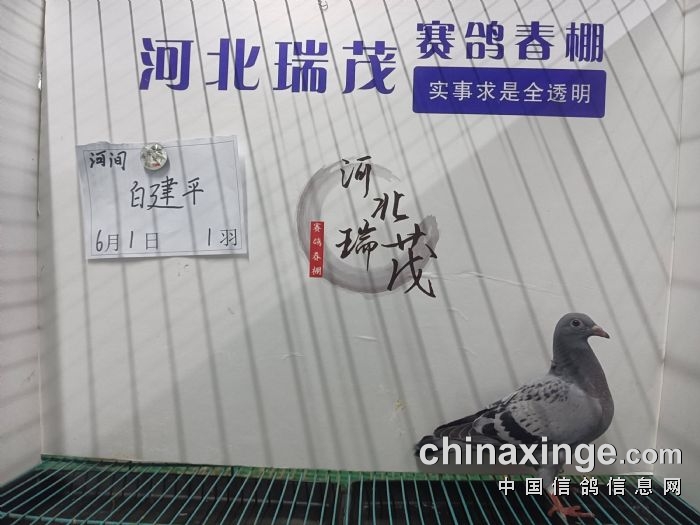 河北瑞茂 赛鸽春棚
实事求是全透明
河间
白建平
6月1日 1羽
河北瑞茂
赛鸽春棚
chinaxinge.com
中国信鸽信息网